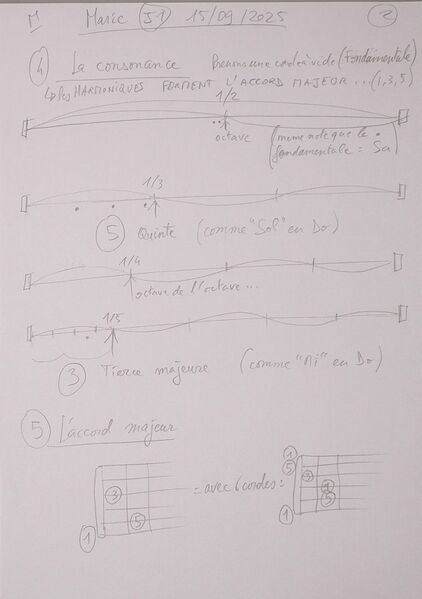 Marie S1 15/09/2025 2
4 La consonance Prenons une corde à vide (Fondamentale)
↳ Des HARMONIQUES FORMENT L'ACCORD MAJEUR... (1, 3, 5)
1/2
octave (même note que la
fondamentale = Sa)
1/3
5 Quinte (comme "Sol" en Do)
1/4
octave de l'octave...
1/5
3 Tierce majeure (comme "Mi" en Do)
5 L'accord majeur
3 5 1 = avec 6 cordes : 1 5 3 1 5 1